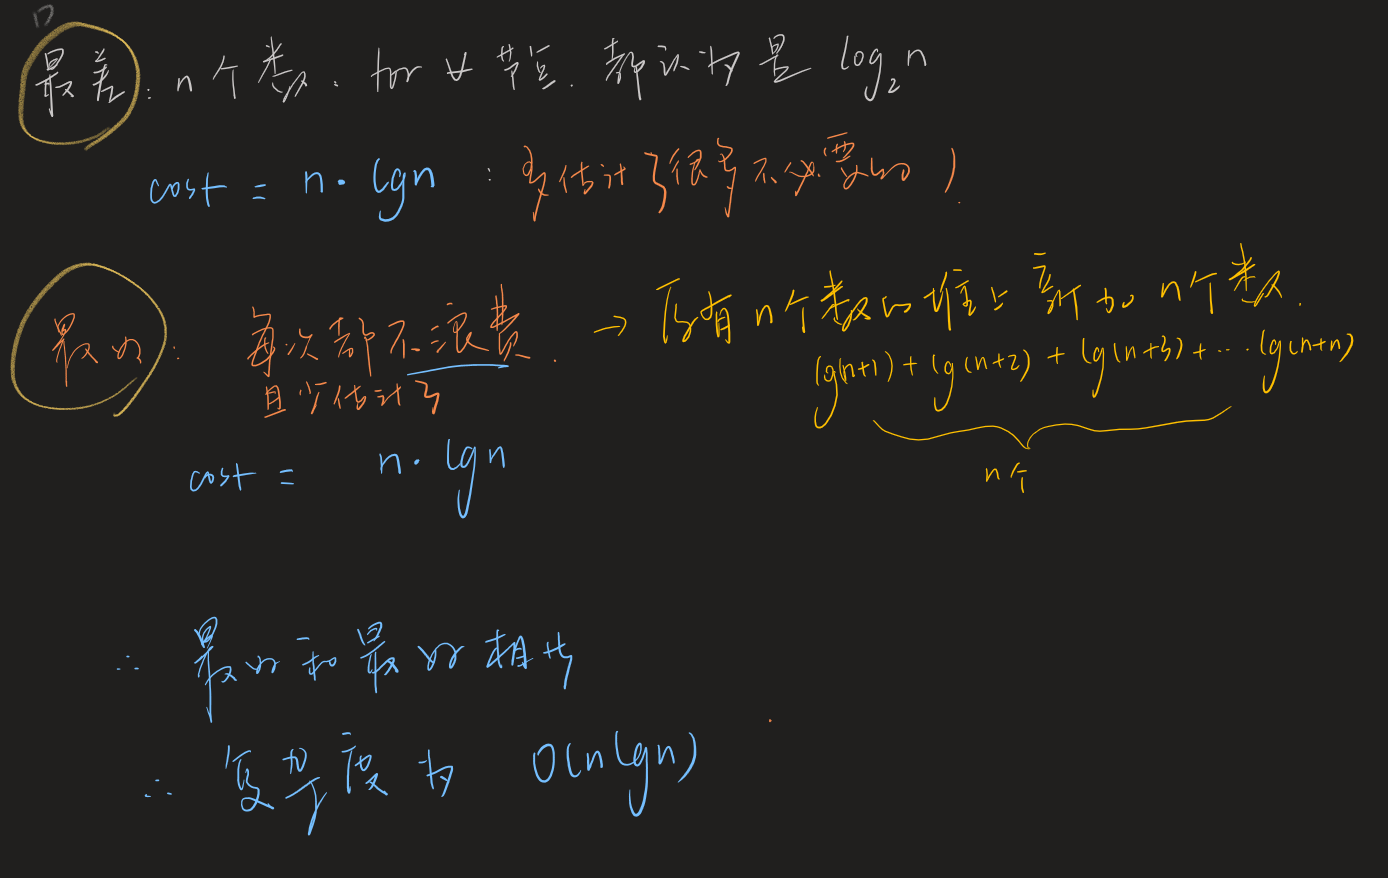 最差: n个数. for ∀ 节点. 都认为是 log₂n
cost = n·lgn : 多估计了很多不必要的)
最好: 每次都不浪费. → 原有n个数的堆上新加n个数.
且少估计了
lg(n+1) + lg(n+2) + lg(n+3) + ... lg(n+n)
n个
cost = n·lgn
∴ 最好和最好相等
∴ 复杂度为 O(nlgn)